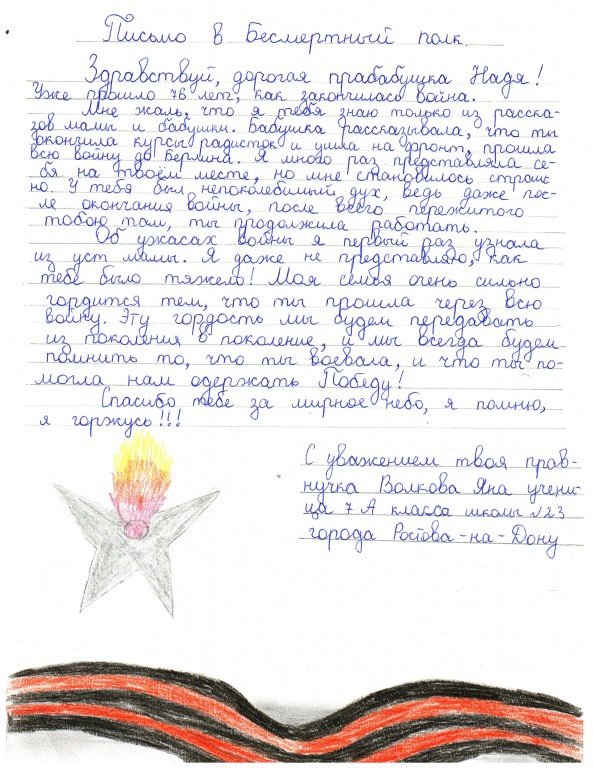 Письмо в Бесмертный полк.
Здравствуй, дорогая прабабушка Надя!
Уже прошло 76 лет, как закончилась война.
Мне жаль, что я тебя знаю только из расска-
зов мамы и бабушки. Бабушка рассказывала, что ты
окончила курсы радисток и ушла на фронт, прошла
всю войну до Берлина. Я много раз представляла се-
бя на твоём месте, но мне становилось страш
но. У тебя был непоколебимый дух, ведь даже пос-
ле окончания войны, после всего пережитого
тобою там, ты продолжила работать.
Об ужасах войны я первый раз узнала
из уст мамы. Я даже не представляю, как
тебе было тяжело! Моя семья очень сильно
гордится тем, что ты прошла через всю
войну. Эту гордость мы будем передавать
из поколения в поколение, и мы всегда будем
помнить то, что ты воевала, и что ты по-
могла нам одержать Победу!
Спасибо тебе за мирное небо, я помню,
я горжусь!!!
С уважением твоя прав-
нучка Волкова Яна учени-
ца 7 А класса школы №23
города Ростова-на-Дону